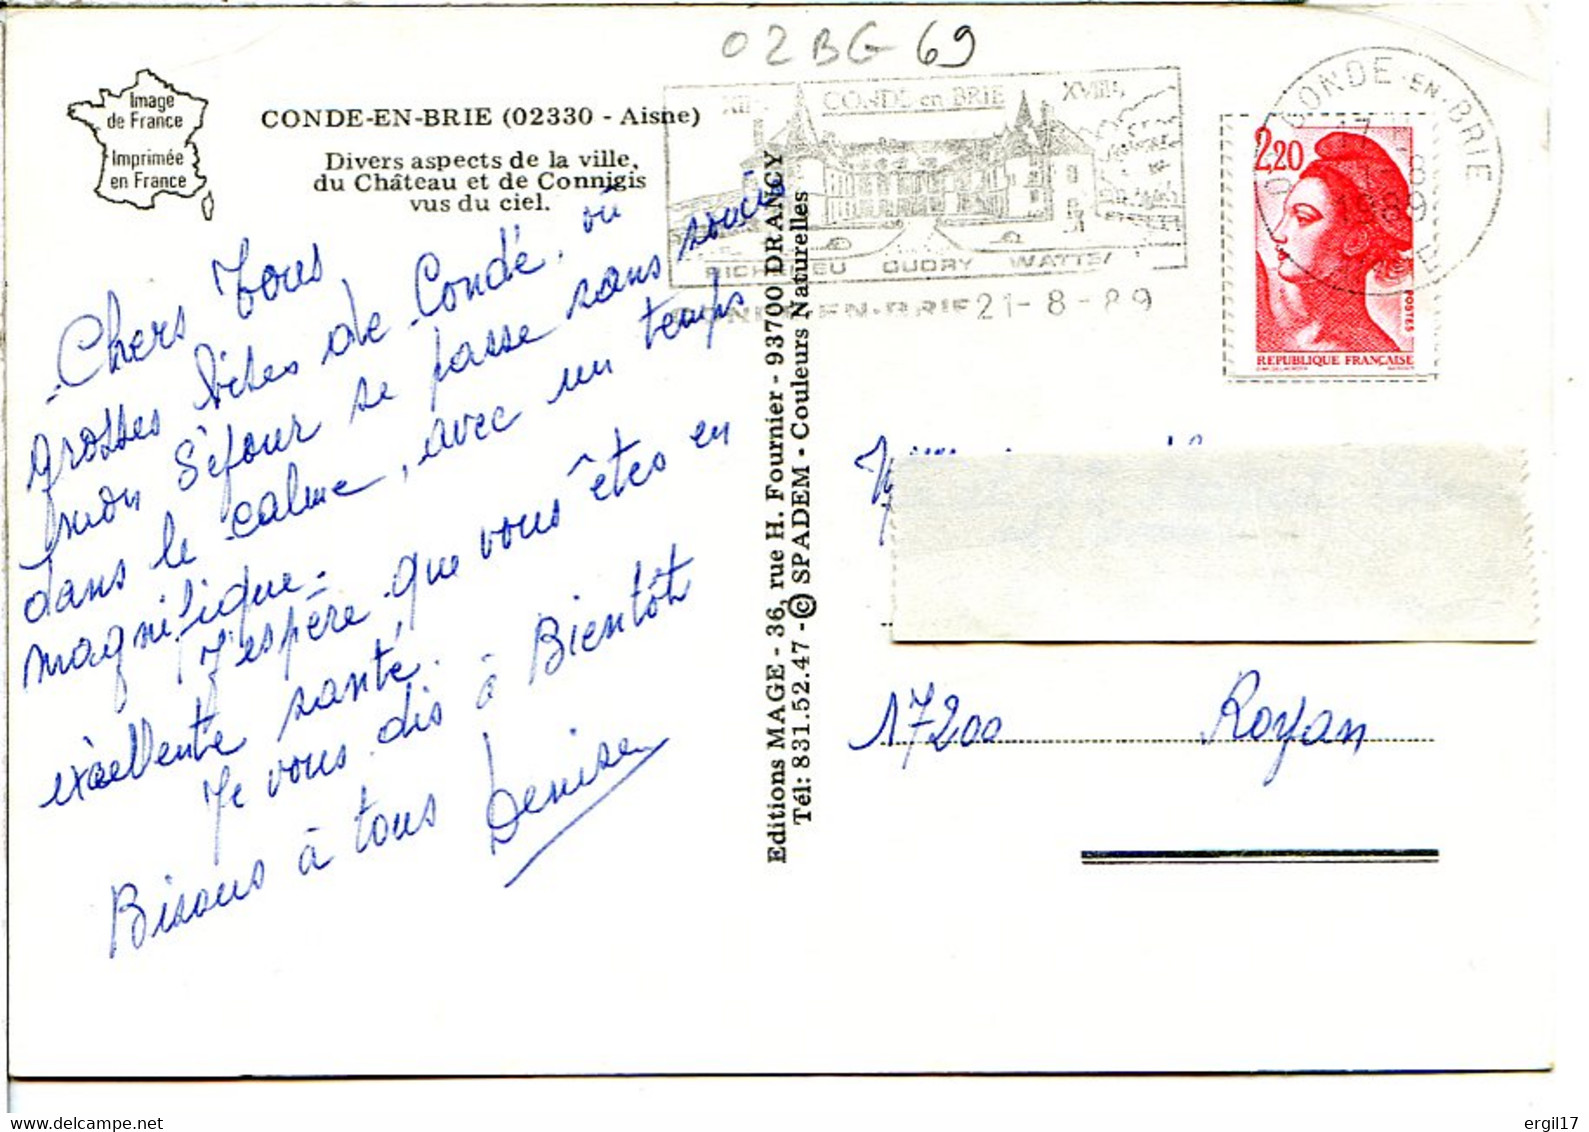 02BG 69
Image
de France
Imprimée
en France
CONDE-EN-BRIE (02330 - Aisne)
Divers aspects de la ville,
du Château et de Connigis
vus du ciel.
XVIII
CONDE en BRIE
OUDRY
21-8-89
CONDE-EN-BRIE
2,20
POSTES
REPUBLIQUE FRANÇAISE
Chers Tous
grosses bises de Condé, où
mon séjour se passe sans soucis
dans le calme, avec un temps
magnifique.
J'espère que vous êtes en
excellente santé.
Je vous dis à Bientôt
Bisous à tous Denise
Editions MAGE - 36, rue H. Fournier - 93700 DRANCY
Tél: 831.52.47 - © SPADEM - Couleurs Naturelles
17200 Royan
www.delcampe.net
ergil17